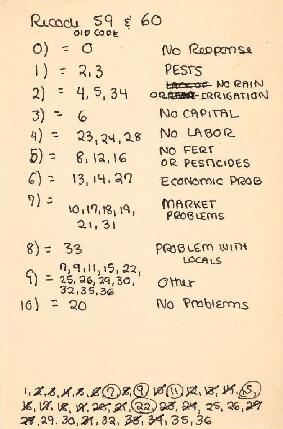 Recode 59 & 60
OLD CODE
0) = 0 No Response
1) = 2,3 PESTS
2) = 4, 5, 34 NO RAIN
OR IRRIGATION
3) = 6 NO CAPITAL
4) = 23, 24, 28 NO LABOR
5) = 8, 12, 16 NO FERT
OR PESTICIDES
6) = 13, 14, 27 ECONOMIC PROB
7) = 10, 17, 18, 19,
21, 31 MARKET
PROBLEMS
8) = 33 PROBLEM WITH
LOCALS
9) = 7, 9, 11, 15, 22,
25, 26, 29, 30,
32, 35, 36 Other
10) = 20 No Problems
1, 2, 3, 4, 5, 6, 7, 8, 9, 10, 11, 12, 13, 14, 15,
16, 17, 18, 19, 20, 21, 22, 23, 24, 25, 26, 27
28, 29, 30, 31, 32, 33, 34, 35, 36